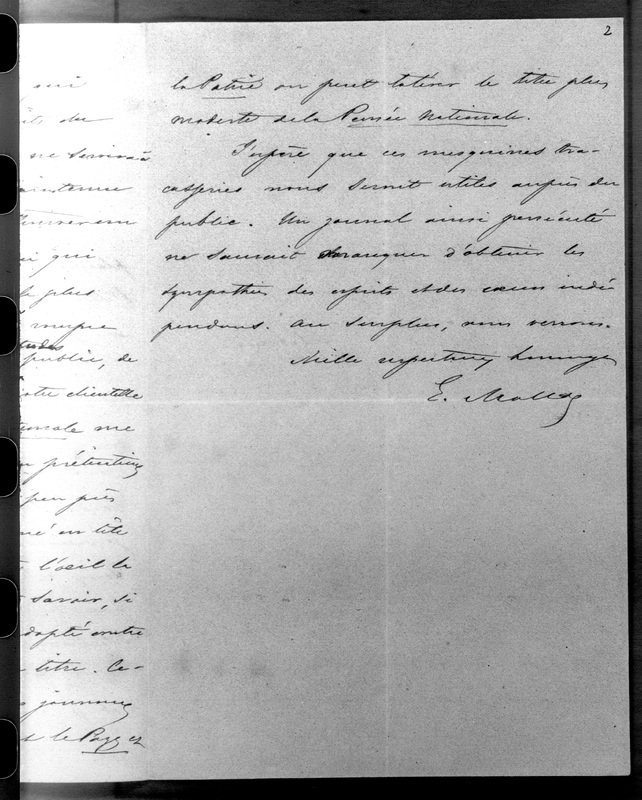 2
la Patrie on peut tolérer le titre plus
modeste de la Pensée Nationale.
J'espère que ces mesquines tra-
casseries nous seront utiles auprès du
public. Un journal ainsi persécuté
ne saurait manquer d'obtenir les
sympathies des esprits et des cœurs indé
pendans. Au surplus, nous verrons.
Mille respectueux hommages
E.
qui
de
ne servira
maintenue
qui
le plus
public, de
notre clientelle
Nationale me
prétention
peu près
en tête
l'œil le
savoir, si
adopté entre
titre. Ce-
journaux
le